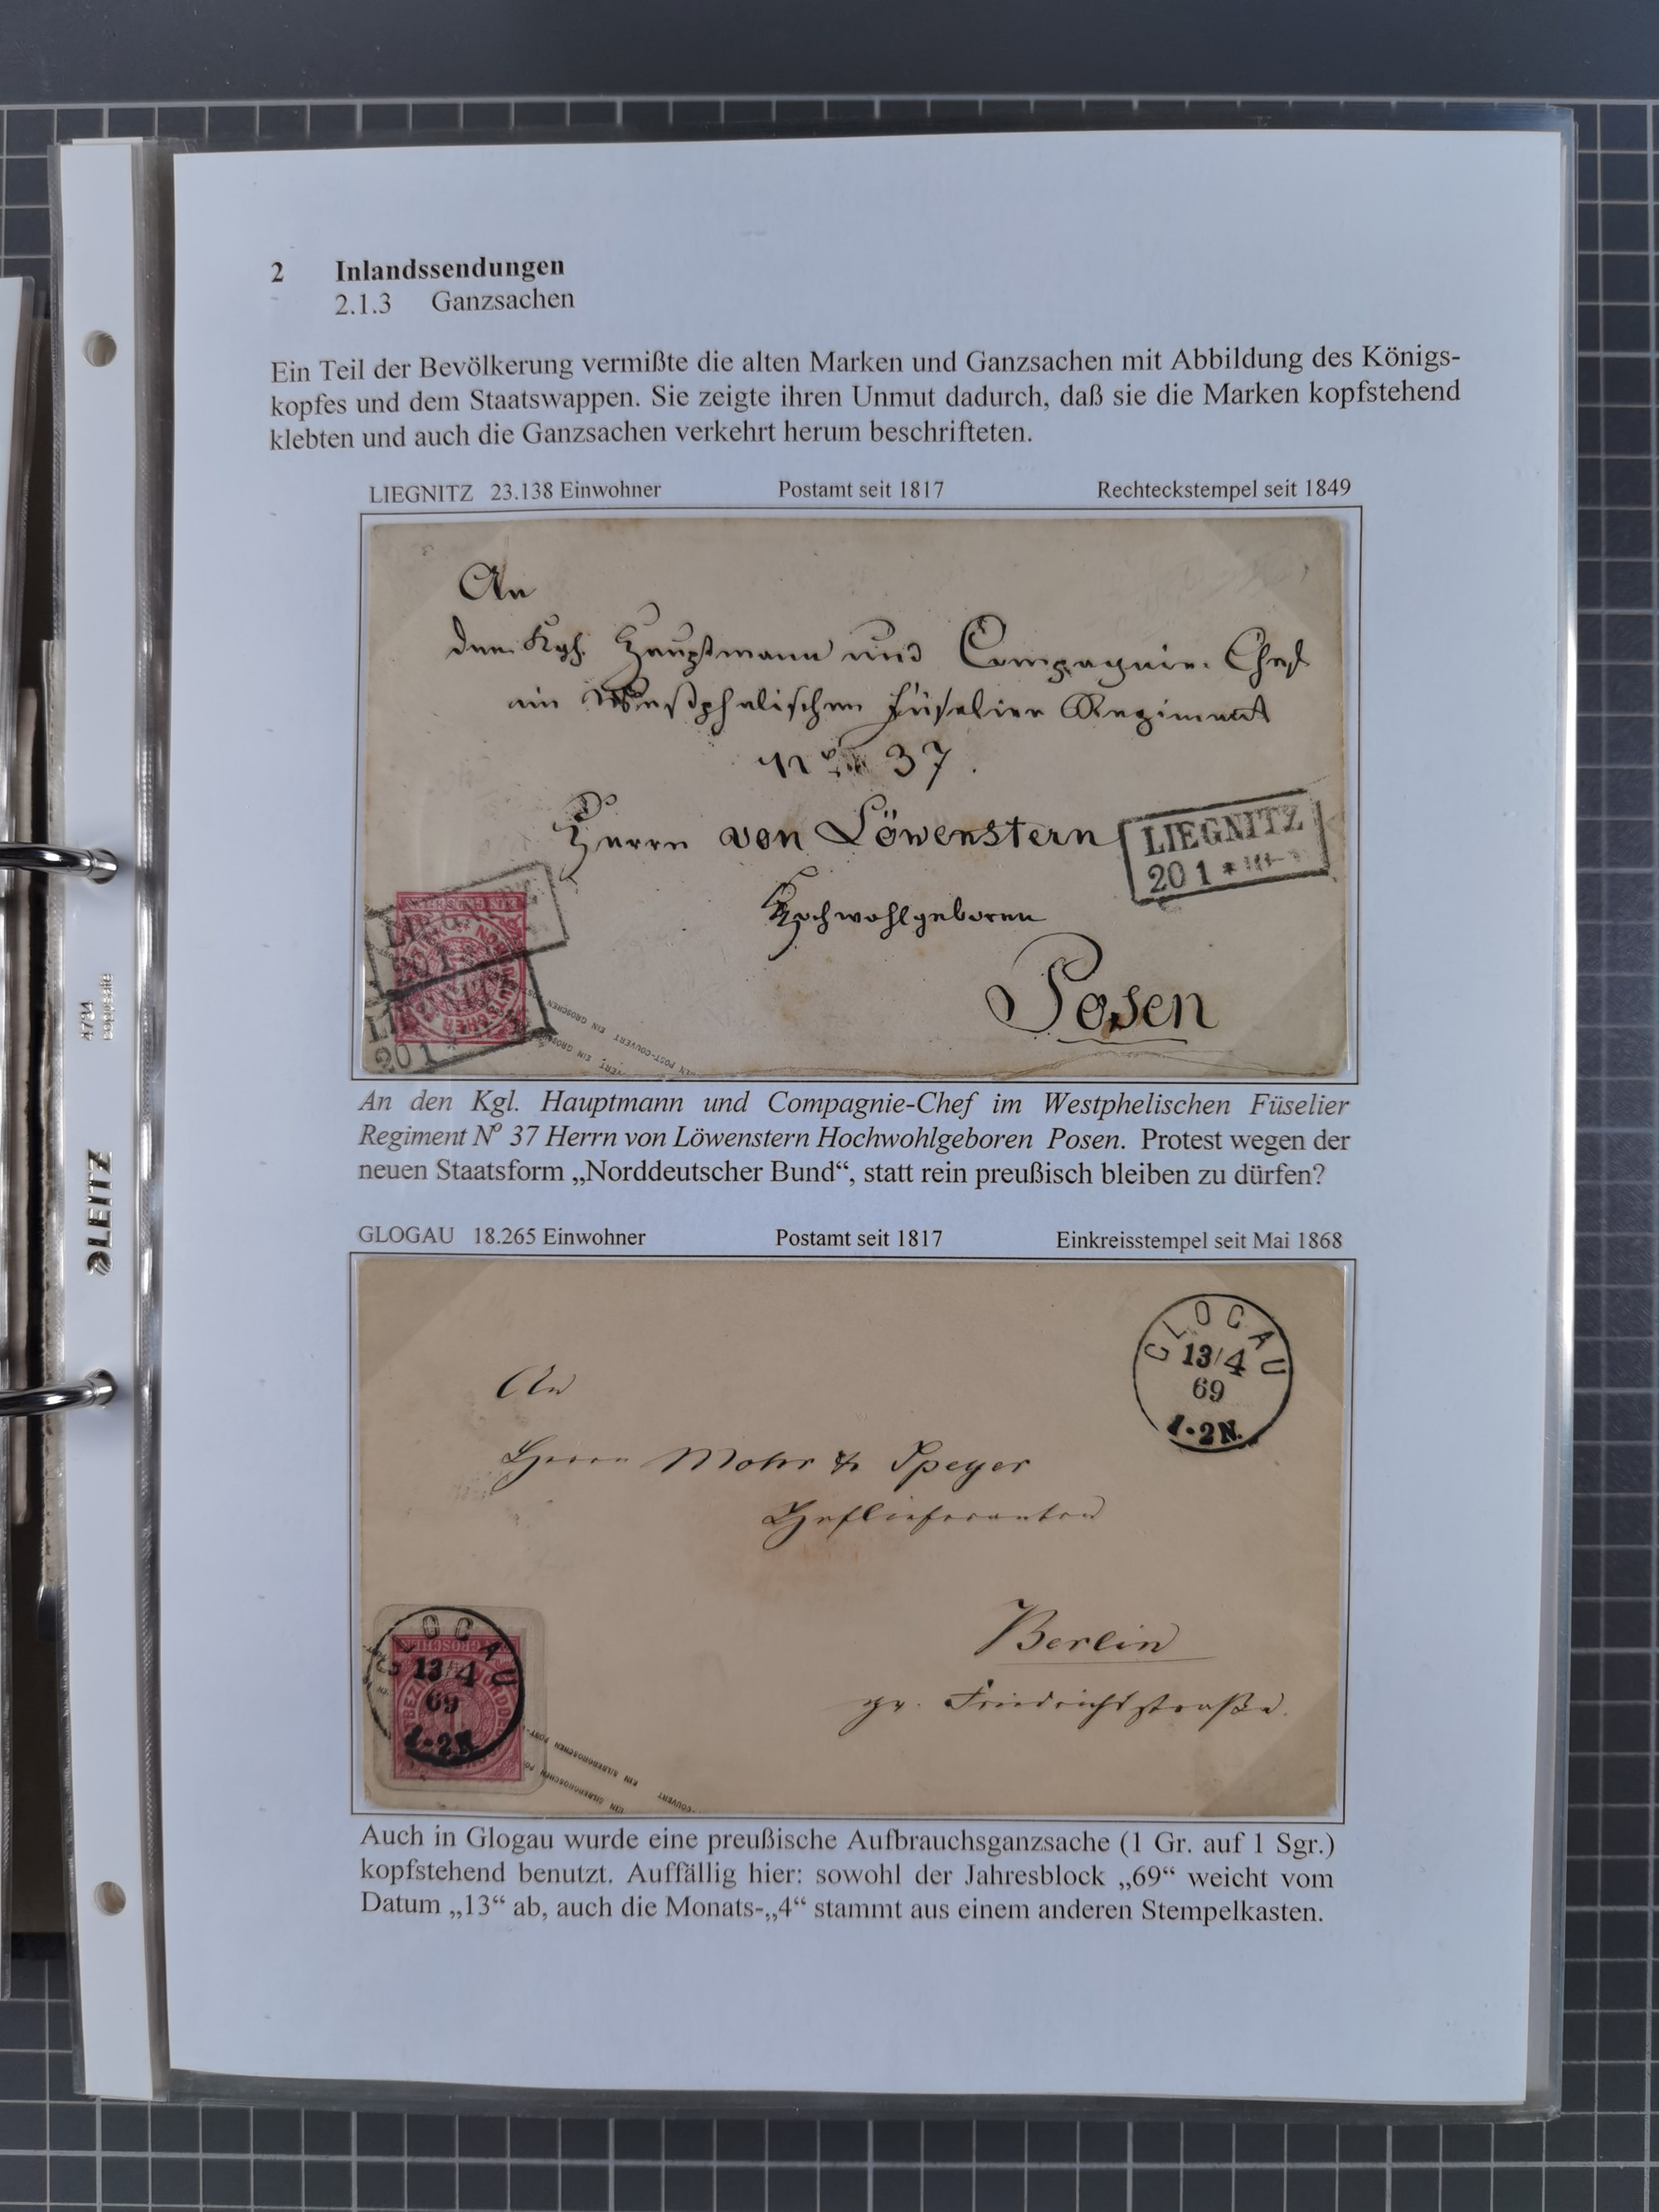 2 Inlandssendungen
2.1.3 Ganzsachen
Ein Teil der Bevölkerung vermißte die alten Marken und Ganzsachen mit Abbildung des Königs-
kopfes und dem Staatswappen. Sie zeigte ihren Unmut dadurch, daß sie die Marken kopfstehend
klebten und auch die Ganzsachen verkehrt herum beschrifteten.
LIEGNITZ 23.138 Einwohner Postamt seit 1817 Rechteckstempel seit 1849
An
den Kgl. Hauptmann und Compagnie-Chef
im Westphalischen Füselier Regiment
No 37.
Herrn von Löwenstern
LIEGNITZ
20 1 *
Hochwohlgeboren
Posen
LIEGNITZ
20 1
20 1 *
An den Kgl. Hauptmann und Compagnie-Chef im Westphelischen Füselier
Regiment No 37 Herrn von Löwenstern Hochwohlgeboren Posen. Protest wegen der
neuen Staatsform „Norddeutscher Bund“, statt rein preußisch bleiben zu dürfen?
GLOGAU 18.265 Einwohner Postamt seit 1817 Einkreisstempel seit Mai 1868
GLOGAU
13/4
69
1-2N.
An
Herrn Mohr & Speyer
Hoflieferanten
Berlin
gr. Friedrichstraße.
GLOGAU
13/4
69
1-2N.
EIN GROSCHEN
EIN SILBERGROSCHEN POST-COUVERT
EIN SILBERGROSCHEN
Auch in Glogau wurde eine preußische Aufbrauchsganzsache (1 Gr. auf 1 Sgr.)
kopfstehend benutzt. Auffällig hier: sowohl der Jahresblock „69“ weicht vom
Datum „13“ ab, auch die Monats-„4“ stammt aus einem anderen Stempelkasten.
LEITZ
4734
copysafe